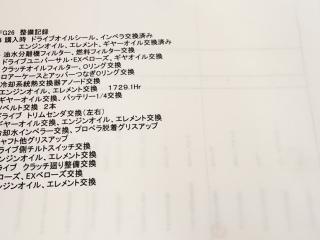 FG26 整備記録
購入時 ドライブオイルシール、インペラ交換済み
エンジンオイル、エレメント、ギヤーオイル交換済み
油水分離機フィルター、燃料フィルター交換
ドライブユニバーサル・EXベローズ、ギヤオイル交換
クラッチオイルフィルター、Oリング交換
ロアーケースとアッパーつなぎOリング交換
冷却系統熱交換器アノード交換
エンジンオイル、エレメント交換 1729.1Hr
ギヤーオイル交換、バッテリー1/4交換
ベルト交換 2本
ドライブ トリムセンダ交換(左右)
ギヤーオイル交換、エンジンオイル、エレメント交換
冷却水インペラー交換、プロペラ脱着グリスアップ
シャフト他グリスアップ
ドライブ側チルトスイッチ交換
エンジンオイル、エレメント交換
ドライブ クラッチ廻り整備交換
ベローズ、EXベローズ交換
エンジンオイル、エレメント交換